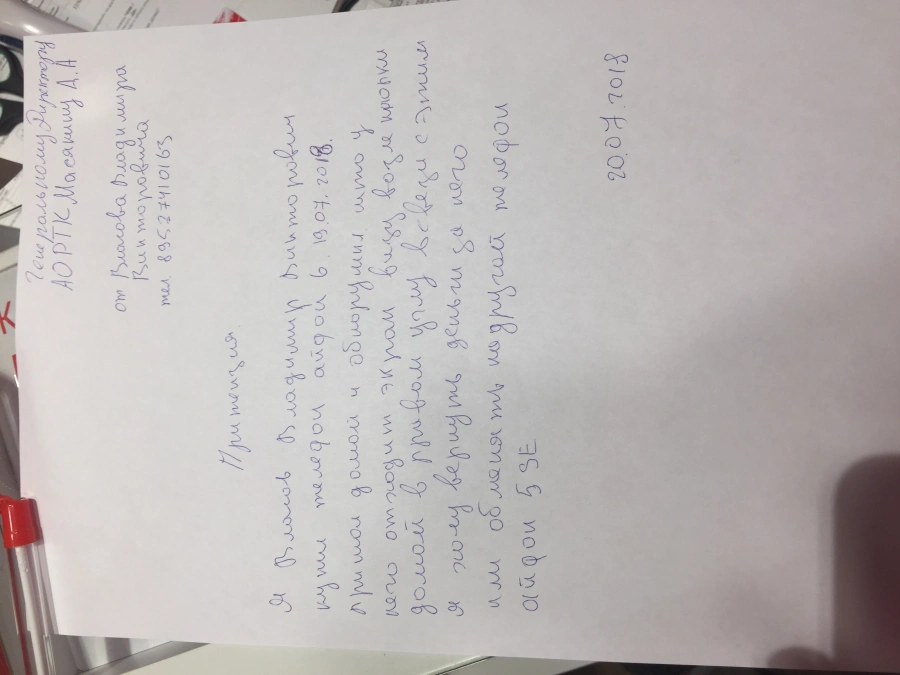 Генеральному Директору
АО РТК Масянину Д.А
от Власова Владимира
Викторовича
тел. 89527410163
Притензия.
Я Власов Владимир Викторович
купил теледон айфон 6. 19.07.2018.
пришол домой и обноружил што у
него отходит экран внизу возле кнопки
домой в правом углу всвези с этим
я хочу вернуть деньги за него
или обменять надругой телефон
айфон 5 SE
20.07.2018